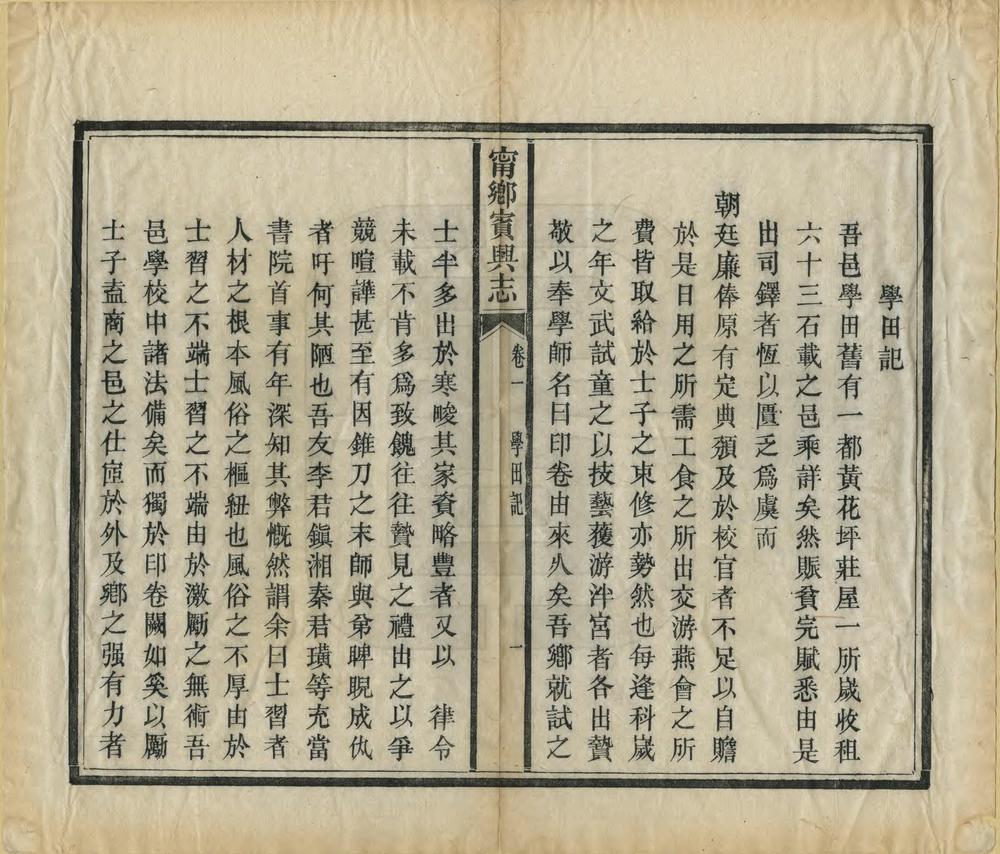 學田記
吾邑學田舊有一都黃花坪莊屋一所歲收租
六十三石載之邑乘詳矣然賑貧完賦悉由是
出司鐸者恆以匱乏為虞而
朝廷廉俸原有定典頒及於校官者不足以自贍
於是日用之所需工食之所出交游燕會之所
費皆取給於士子之束修亦勢然也每逢科歲
之年文武試童之以技藝獲游泮宮者各出贄
敬以奉學師名曰印卷由來久矣吾鄉就試之
甯鄉賓興志
卷一
學田記
一
士半多出於寒畯其家資略豐者又以 律令
未載不肯多為致餽往往贄見之禮出之以爭
競喧譁甚至有因錐刀之末師與弟睥睨成仇
者吁何其陋也吾友李君鎮湘秦君璜等充當
書院首事有年深知其弊慨然謂余曰士習者
人材之根本風俗之樞紐也風俗之不厚由於
士習之不端士習之不端由於激勵之無術吾
邑學校中諸法備矣而獨於印卷闕如奚以勵
士子盍商之邑之仕宦於外及鄉之强有力者